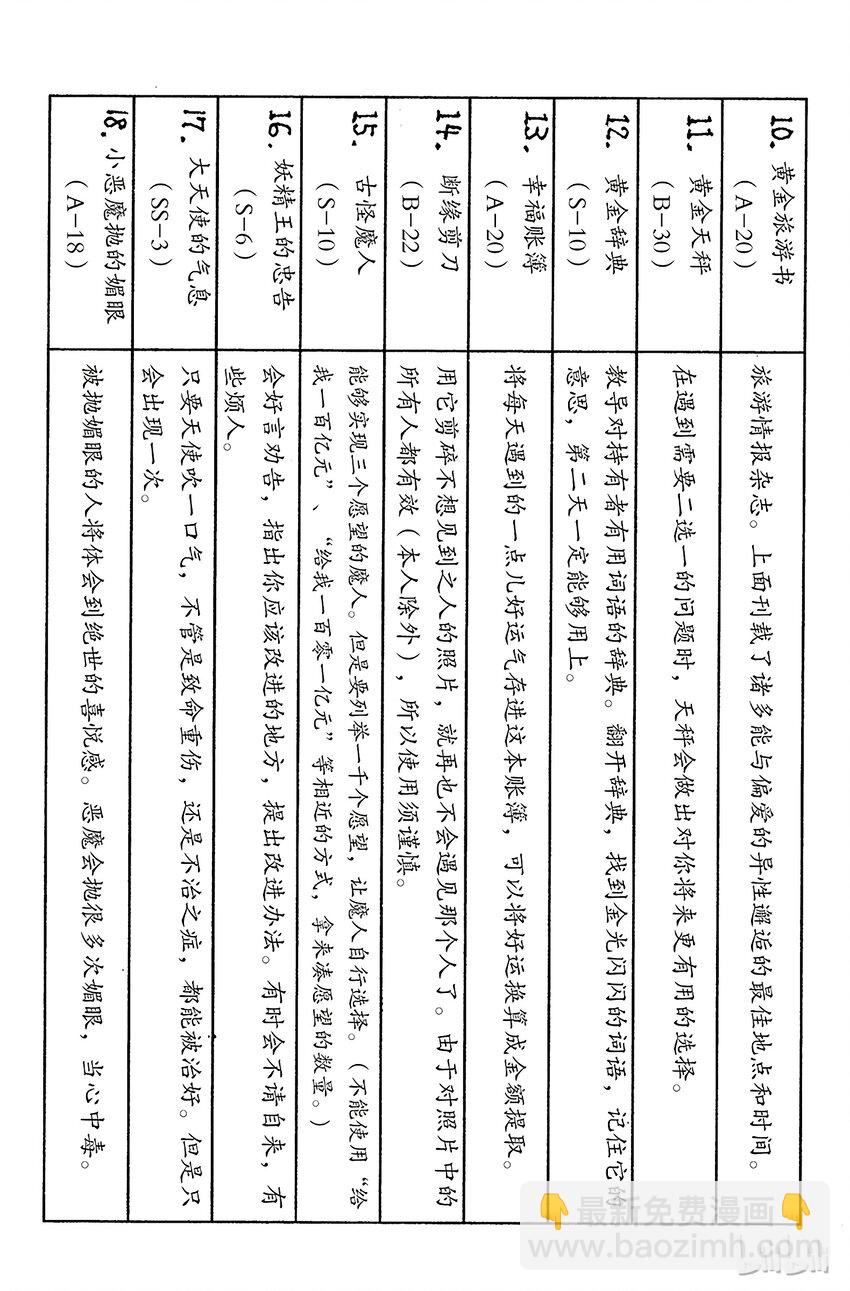 10. 黄金旅游书
（A-20）
旅游情报杂志。上面刊载了诸多能与偏爱的异性邂逅的最佳地点和时间。
11. 黄金天秤
（B-30）
在遇到需要二选一的问题时，天秤会做出对你将来更有用的选择。
12. 黄金辞典
（S-10）
教导对持有者有用词语的辞典。翻开辞典，找到金光闪闪的词语，记住它的
意思，第二天一定能够用上。
13. 幸福账簿
（A-20）
将每天遇到的一点儿好运气存进这本账簿，可以将好运换算成金额提取。
14. 断缘剪刀
（B-22）
用它剪碎不想见到之人的照片，就再也不会遇见那个人了。由于对照片中的
所有人都有效（本人除外），所以使用须谨慎。
15. 古怪魔人
（S-10）
能够实现三个愿望的魔人。但是要列举一千个愿望，让魔人自行选择。（不能使用“给
我一百亿元”、“给我一百零一亿元”等相近的方式，拿来凑愿望的数量。）
16. 妖精王的忠告
（S-6）
会好言劝告，指出你应该改进的地方，提出改进办法。有时会不请自来，有
些烦人。
17. 大天使的气息
（SS-3）
只要天使吹一口气，不管是致命重伤，还是不治之症，都能被治好。但是只
会出现一次。
18. 小恶魔抛的媚眼
（A-18）
被抛媚眼的人将体会到绝世的喜悦感。恶魔会抛很多次媚眼，当心中毒。
👇最新免费漫画👇
www.baozimh.com